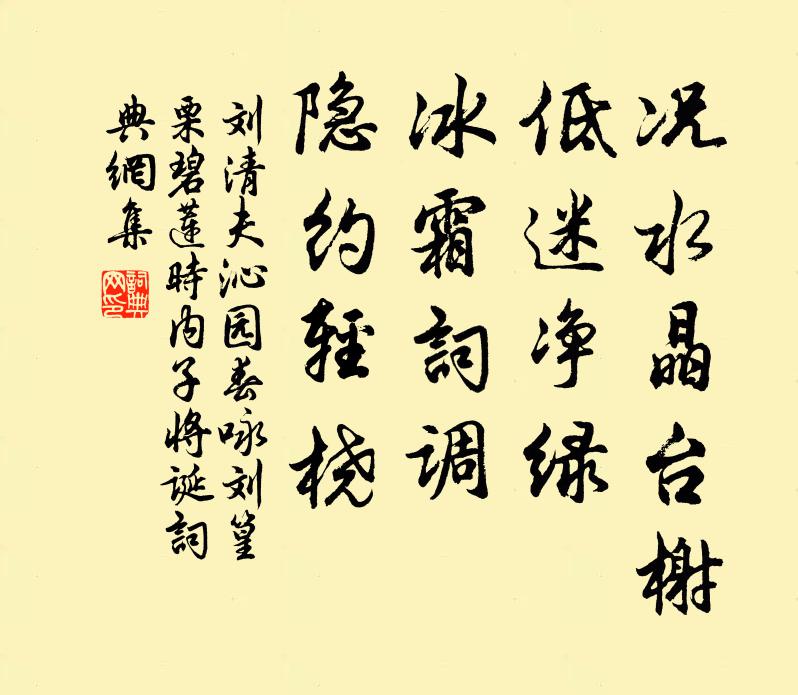 况水晶台榭
低迷净绿
冰霜词调
隐约轻桡
刘清夫沁园春咏刘篁
栗碧莲時内子将诞詞
典網集
詞典網印